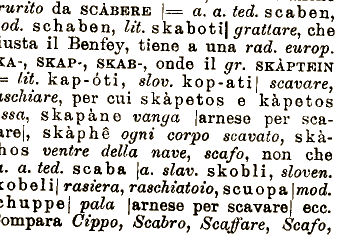 rurito da SCÀBERE |= a. a. ted. scaben,
od. schaben, lit. skaboti| grattare, che
iusta il Benfey, tiene a una rad. europ.
KA-, SKAP-, SKAB-, onde il gr. SKÀPTEIN
= lit. kap-óti, slov. kop-ati| scavare,
aschiare, per cui skàpetos e kàpetos
ssa, skapàne vanga |arnese per sca-
are|, skàphê ogni corpo scavato, skà-
hos ventre della nave, scafo, non che
a. a. ted. scaba |a. slav. skobli, sloven.
kobeli| rasiera, raschiatoio, scuopa |mod.
chuppe| pala |arnese per scavare| ecc.
ompara Cippo, Scabro, Scaffare, Scafo,